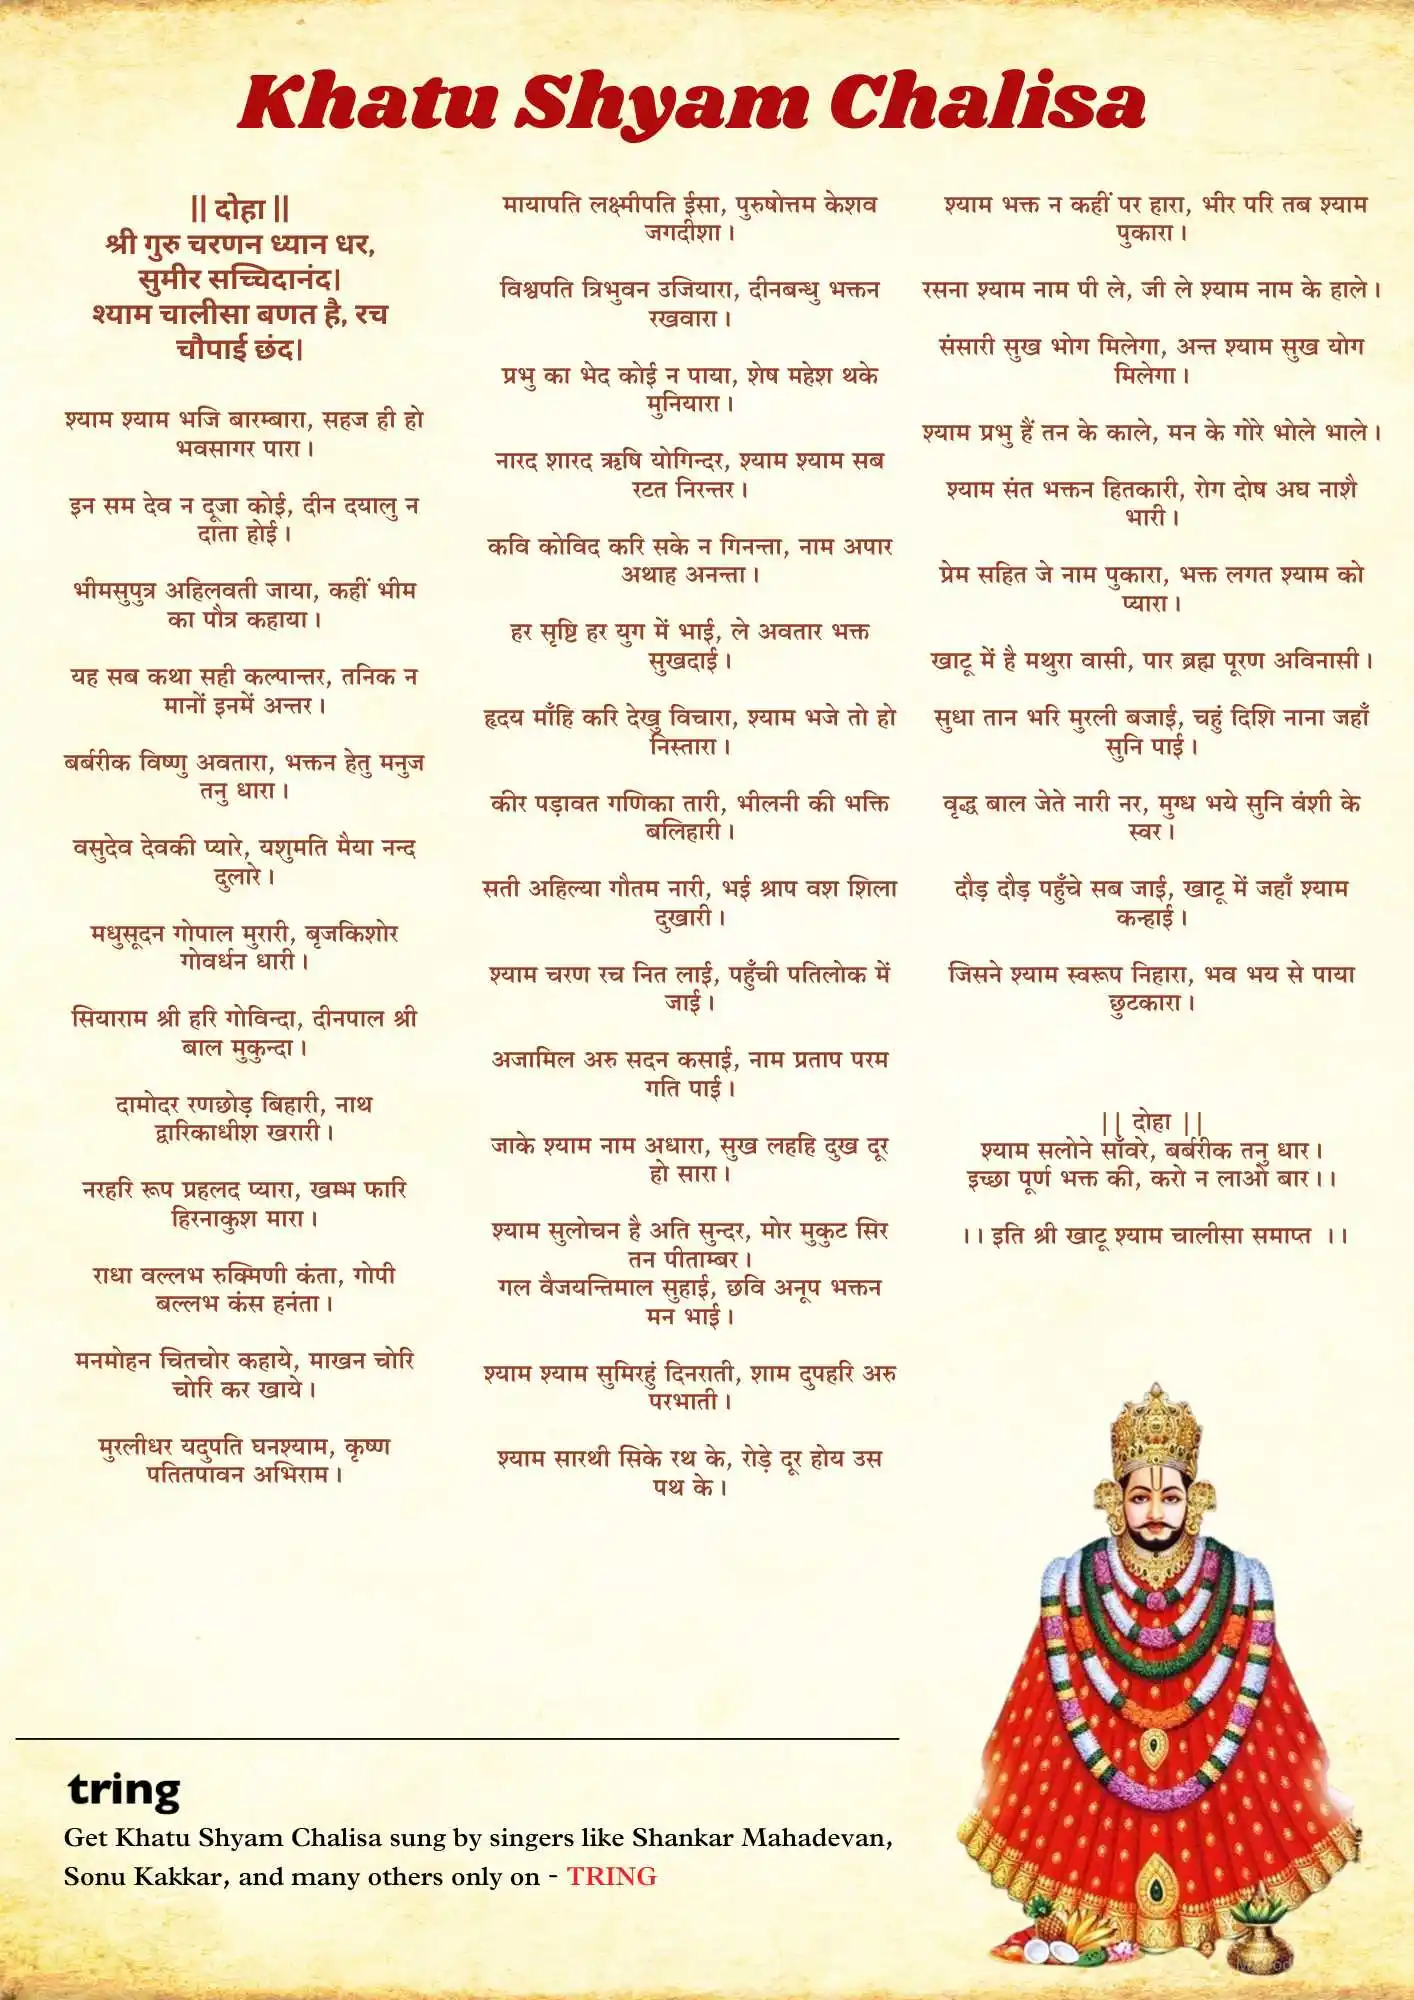 Khatu Shyam Chalisa
|| दोहा ||
श्री गुरु चरणन ध्यान धर,
सुमीर सच्चिदानंद|
श्याम चालीसा बणत है, रच
चौपाई छंद|
श्याम श्याम भजि बारम्बारा, सहज ही हो
भवसागर पारा।
इन सम देव न दूजा कोई, दीन दयालु न
दाता होई।
भीमसुपुत्र अहिलवती जाया, कहीं भीम
का पौत्र कहाया।
यह सब कथा सही कल्पान्तर, तनिक न
मानों इनमें अन्तर।
बर्बरीक विष्णु अवतारा, भक्तन हेतु मनुज
तनु धारा।
वसुदेव देवकी प्यारे, यशुमति मैया नन्द
दुलारे।
मधुसूदन गोपाल मुरारी, बृजकिशोर
गोवर्धन धारी।
सियाराम श्री हरि गोविन्दा, दीनपाल श्री
बाल मुकुन्दा।
दामोदर रणछोड़ बिहारी, नाथ
द्वारिकाधीश खरारी।
नरहरि रूप प्रहलद प्यारा, खम्भ फारि
हिरनाकुश मारा।
राधा वल्लभ रुक्मिणी कंता, गोपी
बल्लभ कंस हनंता।
मनमोहन चितचोर कहाये, माखन चोरि
चोरि कर खाये।
मुरलीधर यदुपति घनश्याम, कृष्ण
पतितपावन अभिराम।
मायापति लक्ष्मीपति ईसा, पुरुषोत्तम केशव
जगदीशा।
विश्वपति त्रिभुवन उजियारा, दीनबन्धु भक्तन
रखवारा।
प्रभु का भेद कोई न पाया, शेष महेश थके
मुनियारा।
नारद शारद ऋषि योगिन्दर, श्याम श्याम सब
रटत निरन्तर।
कवि कोविद करि सके न गिनन्ता, नाम अपार
अथाह अनन्ता।
हर सृष्टि हर युग में भाई, ले अवतार भक्त
सुखदाई।
हृदय माँहि करि देखु विचारा, श्याम भजे तो हो
निस्तारा।
कीर पड़ावत गणिका तारी, भीलनी की भक्ति
बलिहारी।
सती अहिल्या गौतम नारी, भई श्राप वश शिला
दुखारी।
श्याम चरण रच नित लाई, पहुँची पतिलोक में
जाई।
अजामिल अरु सदन कसाई, नाम प्रताप परम
गति पाई।
जाके श्याम नाम अधारा, सुख लहहि दुख दूर
हो सारा।
श्याम सुलोचन है अति सुन्दर, मोर मुकुट सिर
तन पीताम्बर।
गल वैजयन्तिमाल सुहाई, छवि अनूप भक्तन
मन भाई।
श्याम श्याम सुमिरहुं दिनराती, शाम दुपहरि अरु
परभाती।
श्याम सारथी सिके रथ के, रोड़े दूर होय उस
पथ के।
श्याम भक्त न कहीं पर हारा, भीर परि तब श्याम
पुकारा।
रसना श्याम नाम पी ले, जी ले श्याम नाम के हाले।
संसारी सुख भोग मिलेगा, अन्त श्याम सुख योग
मिलेगा।
श्याम प्रभु हैं तन के काले, मन के गोरे भोले भाले।
श्याम संत भक्तन हितकारी, रोग दोष अघ नाशै
भारी।
प्रेम सहित जे नाम पुकारा, भक्त लगत श्याम को
प्यारा।
खाटू में है मथुरा वासी, पार ब्रह्म पूरण अविनासी।
सुधा तान भरि मुरली बजाई, चहुं दिशि नाना जहाँ
सुनि पाई।
वृद्ध बाल जेते नारी नर, मुग्ध भये सुनि वंशी के
स्वर।
दौड़ दौड़ पहुँचे सब जाई, खाटू में जहाँ श्याम
कन्हाई।
जिसने श्याम स्वरूप निहारा, भव भय से पाया
छुटकारा।
|| दोहा ||
श्याम सलोने साँवरे, बर्बरीक तनु धार।
इच्छा पूर्ण भक्त की, करो न लाओ बार।।
।। इति श्री खाटू श्याम चालीसा समाप्त ।।
tring
Get Khatu Shyam Chalisa sung by singers like Shankar Mahadevan,
Sonu Kakkar, and many others only on - TRING